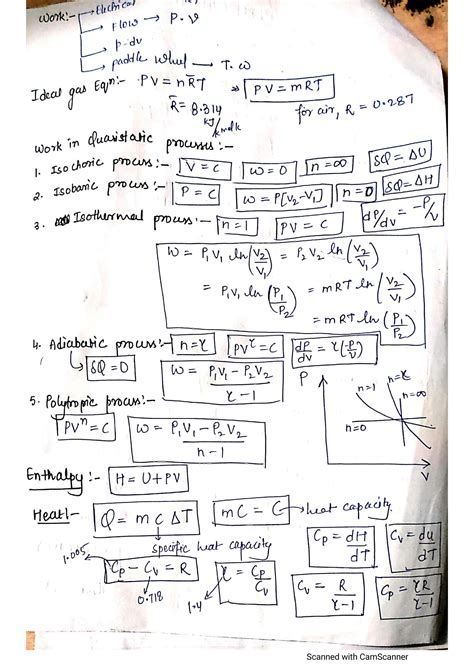 Work:- → Electrical
→ Flow → P.V
→ p-dv
→ paddle wheel → T.ω
Ideal gas Eqn:- PV = nR̄T ⇒ PV = mRT
R̄ = 8.314 kJ/kmolk for air, R = 0.287
Work in Quasistatic processes:-
1. Isochoric process:- V = C W = 0 n = ∞ δQ = ΔU
2. Isobaric process:- P = C W = P[V2-V1] n = 0 δQ = ΔH
3. Isothermal process:- n = 1 PV = C dP/dV = -P/V
W = P1V1 ln(V2/V1) = P2V2 ln(V2/V1)
= P1V1 ln(P1/P2) = mRT ln(V2/V1)
= mRT ln(P1/P2)
4. Adiabatic process:- n = γ PV^γ = C dP/dV = γ(P/V)
↳ δQ = 0 W = P1V1 - P2V2 / γ-1
5. Polytropic process:-
PV^n = C W = P1V1 - P2V2 / n-1
P n=1 n=γ n=∞
n=0
V
Enthalpy:- H = U + PV
Heat:- Q = m C ΔT mC = C → heat capacity
specific heat capacity
1.005 Cp - Cv = R 0.718
γ = Cp/Cv 1.4
Cp = dH/dT Cv = du/dT
Cv = R/γ-1 Cp = γR/γ-1
Scanned with CamScanner